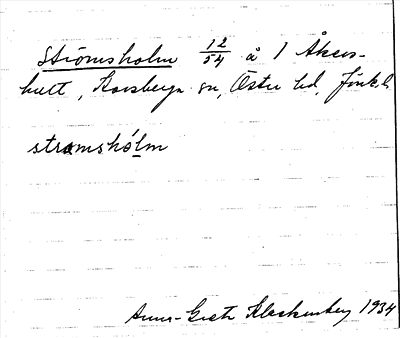 Strömsholm 12/54 å 1 Åkers-
hult, Korsberga sn, Östra hd, Jönk.l.
stramshólm
Anna-Greta Klackenberg 1934